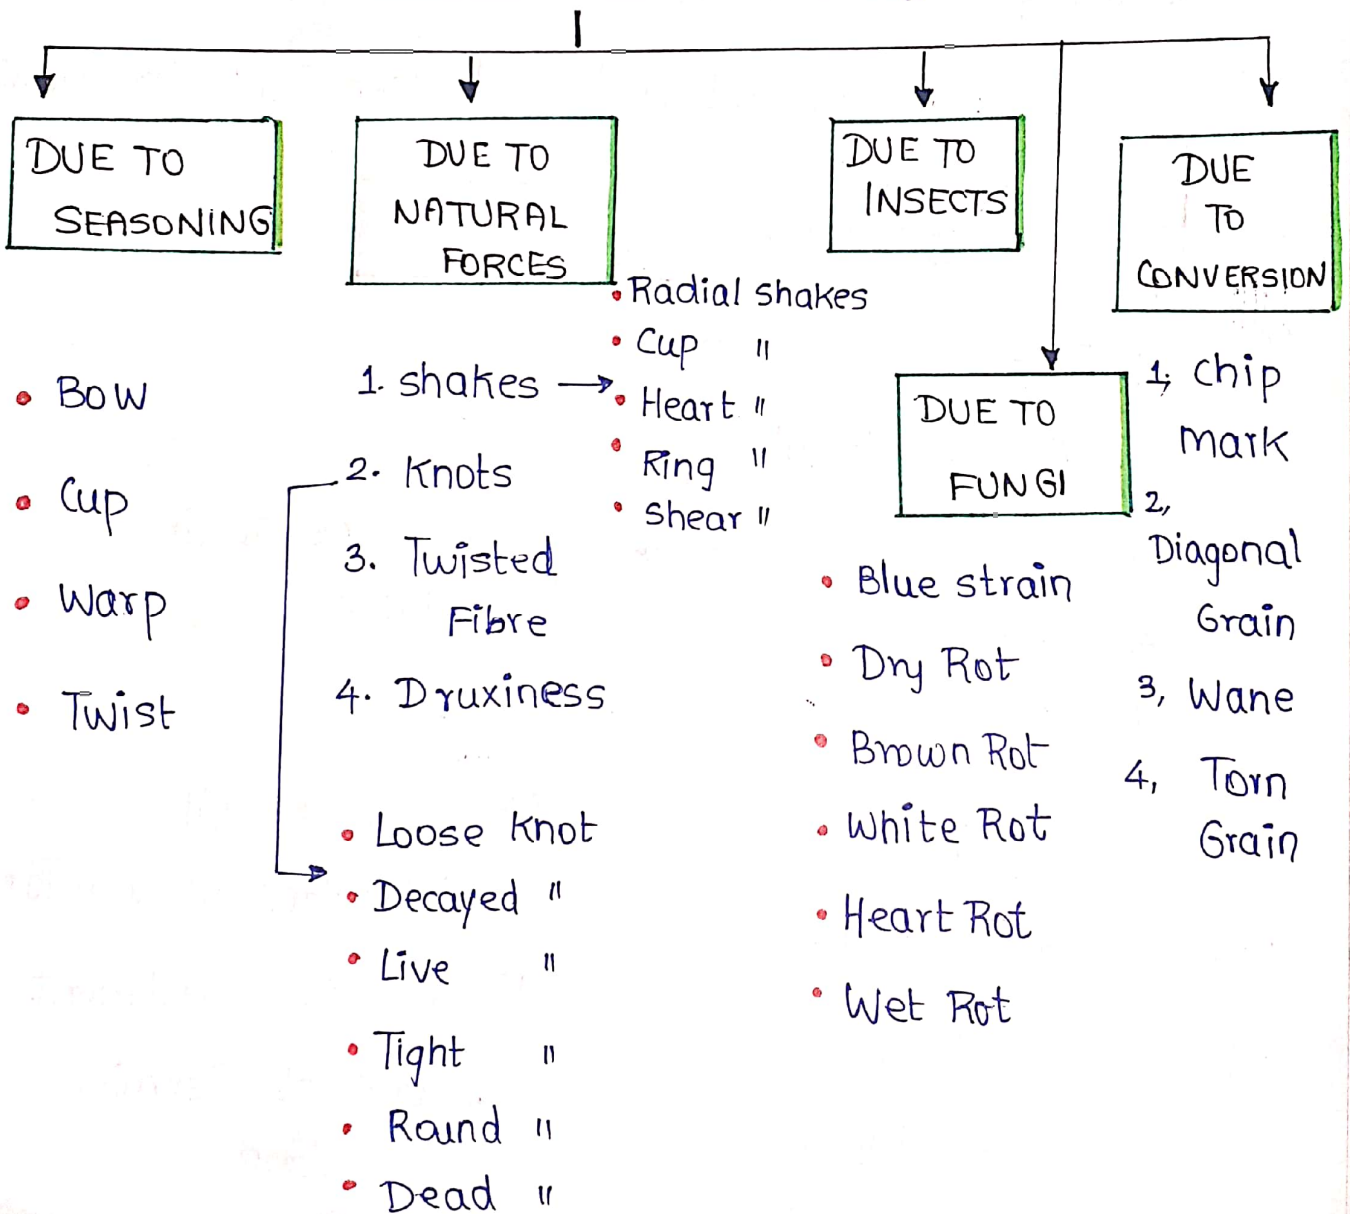 DUE TO
SEASONING
• Bow
• Cup
• Warp
• Twist
DUE TO
NATURAL
FORCES
1. shakes →
• Radial shakes
• Cup "
• Heart "
• Ring "
• Shear "
2. Knots
3. Twisted
Fibre
4. Druxiness
• Loose Knot
• Decayed "
• Live "
• Tight "
• Round "
• Dead "
DUE TO
INSECTS
DUE TO
FUNGI
• Blue strain
• Dry Rot
• Brown Rot
• White Rot
• Heart Rot
• Wet Rot
DUE
TO
CONVERSION
1, Chip
mark
2,
Diagonal
Grain
3, Wane
4, Torn
Grain